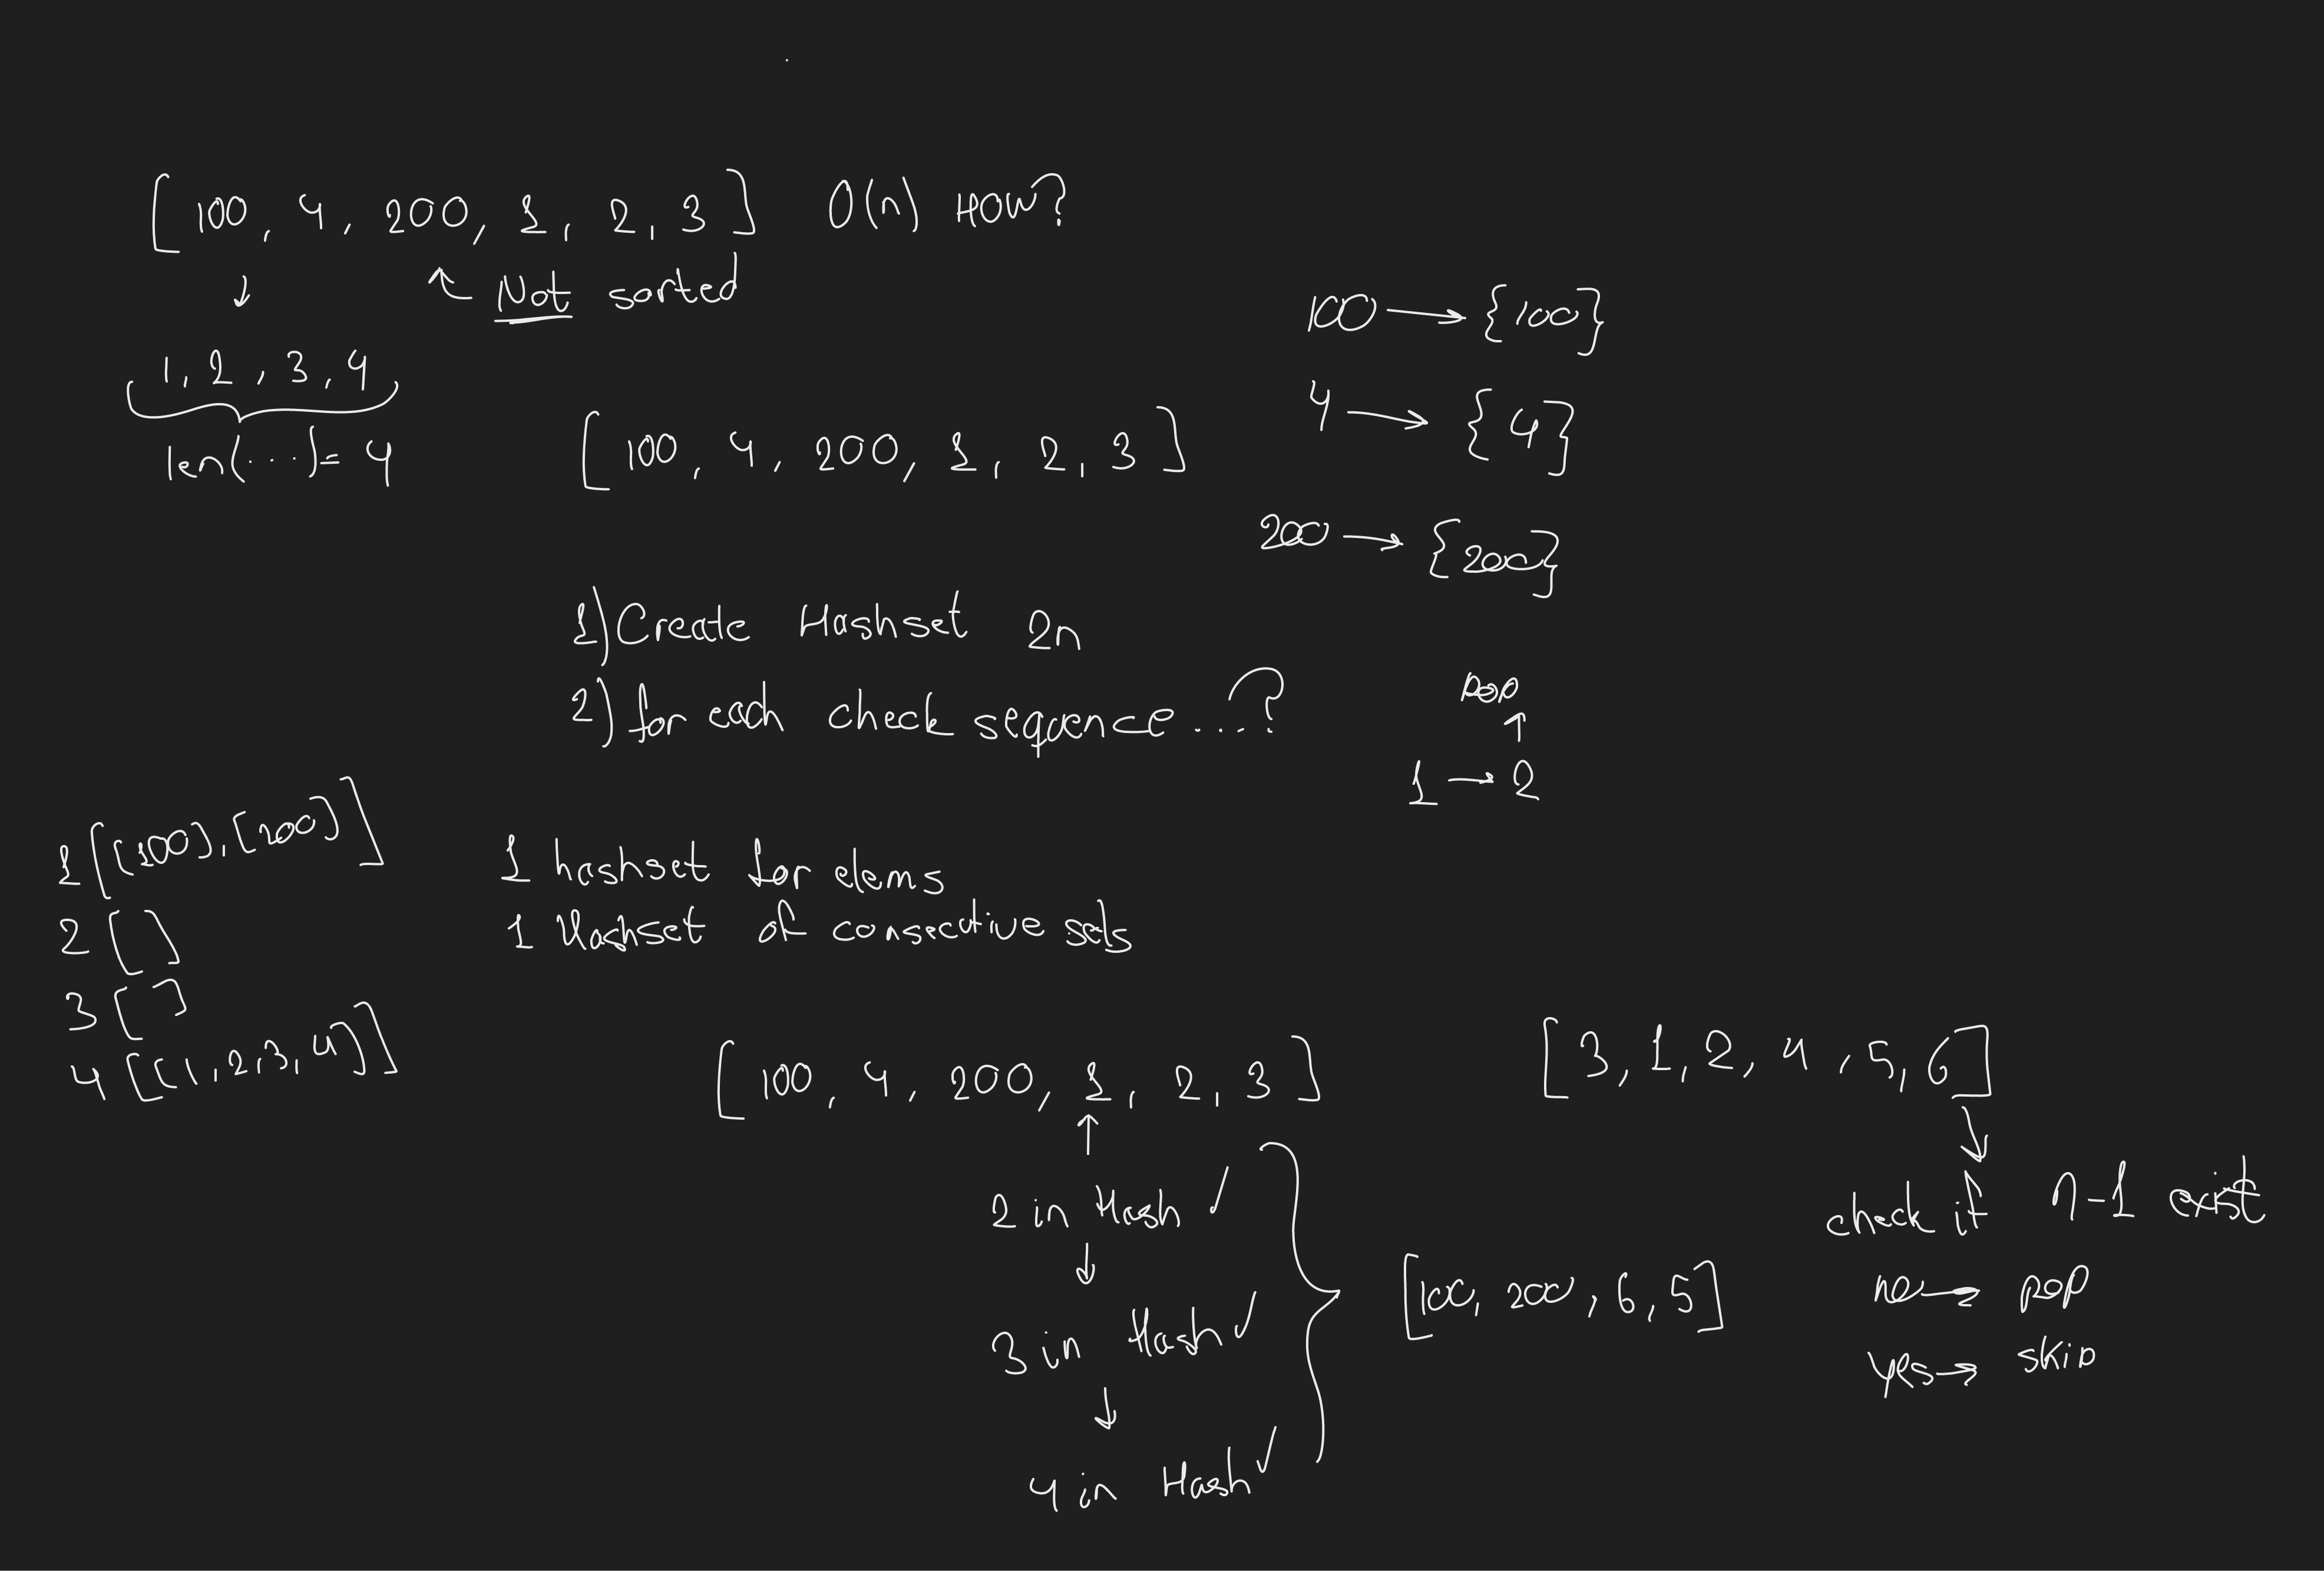 [100, 4, 200, 1, 2, 3] O(n) HOW?
↓ ↑ Not sorted
1, 2, 3, 4
len(...)= 4
100 → {100}
4 → {4}
200 → {200}
[100, 4, 200, 1, 2, 3]
1) Create Hashset 2n
2) for each check sequence ...?
↑
1 → 2
1 [[100], [200]]
2 []
3 []
4 [[1,2,3,4]]
1 hashset for elems
1 Hashset of consective sets
[100, 4, 200, 1, 2, 3]
↑
2 in Hash ✓
↓
3 in Hash ✓
↓
4 in Hash ✓
[3, 1, 2, 4, 5, 6]
↓
check if n-1 exist
no → pop
yes → skip
[100, 200, 6, 5]